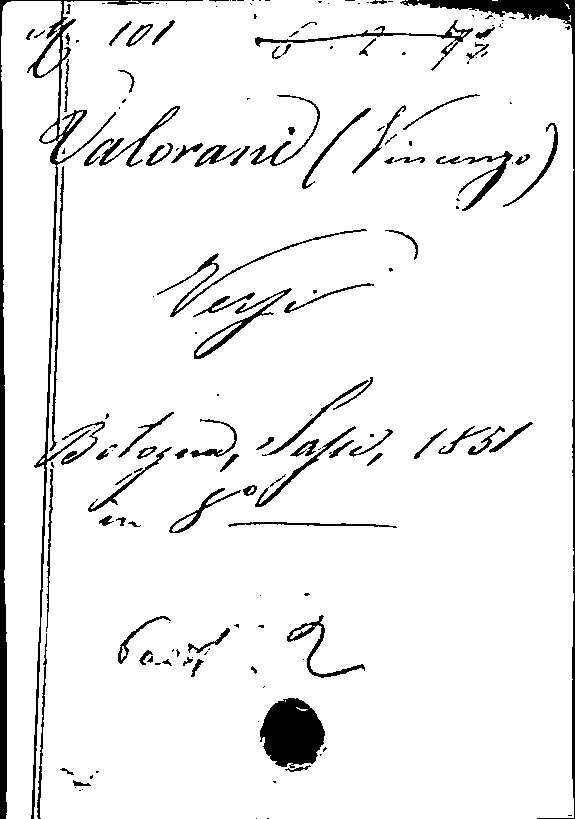 M. 101 6.2.
Valorani (Vincenzo)
Versi
Bologna, Sassi, 1851
in 8º
2